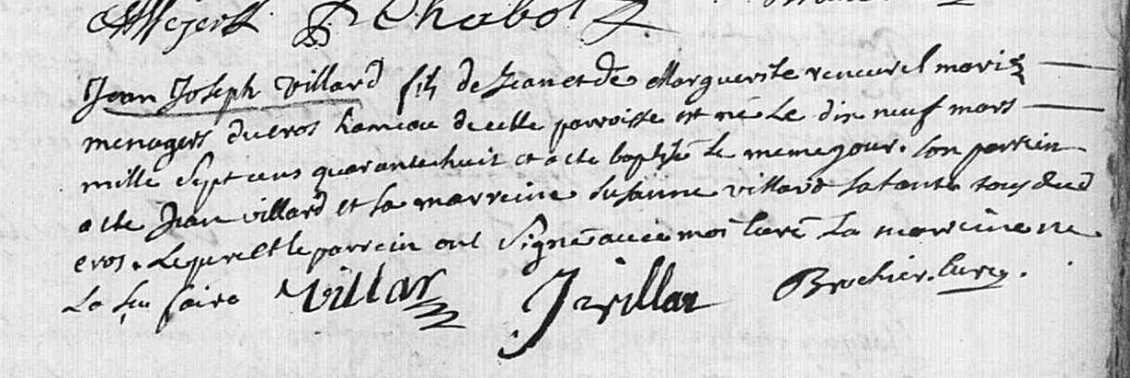 Meyer P Chabot
Jean Joseph Villard fils de Jean et de Marguerite rencurel mariés
menagers du eros hameau de cette parroisse est né Le dix neuf mars
mille sept cens quarante huit et a ete baptisé Le meme jour. Son parrein
a ete Jean villard et sa marreine Susanne villard sa tante tous dud
eros. Le pere et le parrein ont signé avec moi Curé La marreine ne
La sçu faire Villar J villar Brochier. Curé.